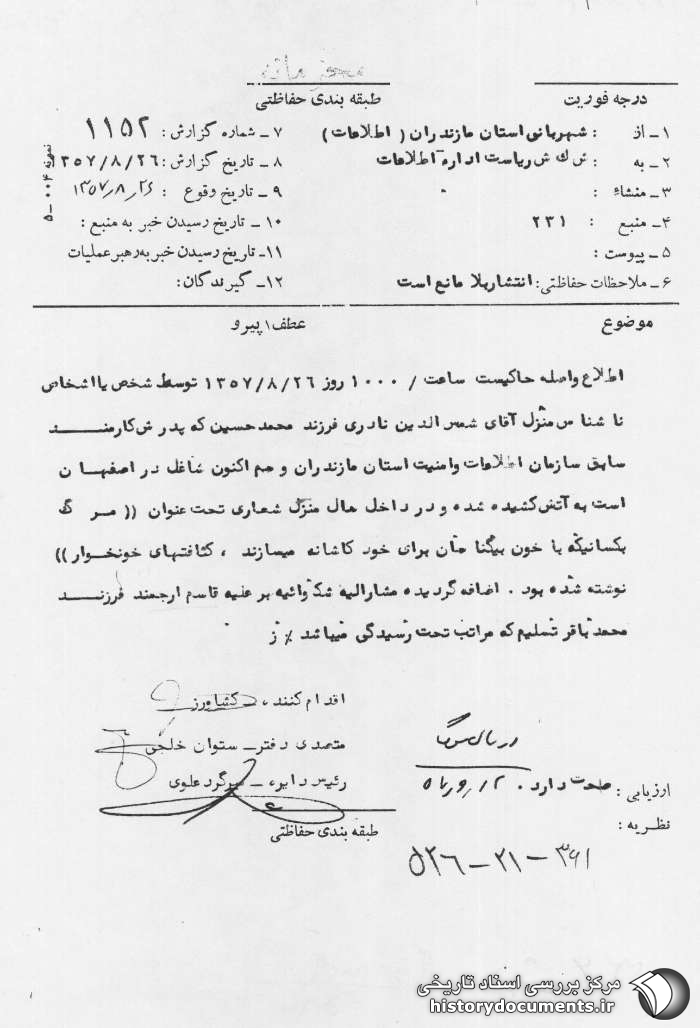 محرمانه
درجه فوریت
طبقه بندی حفاظتی
۱ـ از : شهربانی استان مازندران ( اطلاعات )
۲ـ به : ش ك ش ریاست اداره اطلاعات
۳ـ منشاء :
۴ـ منبع : ۲۳۱
۵ـ پیوست :
۶ـ ملاحظات حفاظتی : انتشار بلا مانع است
۷ـ شماره گزارش : ۱۱۵۲
۸ـ تاریخ گزارش : ۱۳۵۷/۸/۲۶
۹ـ تاریخ وقوع : ۱۳۵۷٫۸٫۲۶
۱۰ـ تاریخ رسیدن خبر به منبع :
۱۱ـ تاریخ رسیدن خبر به رهبر عملیات
۱۲ـ گیرندگان :
نمونه ۰۰۴ـ۵
موضوع
عطف / پیرو
اطلاع واصله حاکیست ساعت / ۱۰۰۰ روز ۱۳۵۷/۸/۲۶ توسط شخص یا اشخاص
نا شناس منزل آقای شمس الدین نادری فرزند محمدحسین که پدرش کارمنـــد
سابق سازمان اطلاعات وامنیت استان مازندران و هم اکنون شاغل در اصفهـان
است به آتش کشیده شده و در داخل هال منزل شعاری تحت عنوان (( مـر گ
بکسانیکه با خون بیگنا هان برای خود کاشانه میسازند ، کثافتهای خونخـوار ))
نوشته شده بود . اضافه گردیده مشارالیه شکوائیه بر علیه قاسم ارجمند فرزنــد
محمد باقر تسلیم که مراتب تحت رسیدگی میباشد ٪ ز
اقدام کننده ـ کشاورز
متصدی دفتر ـ ستوان خلجی
رئیس دایره ـ سرگرد علوی
ارزیابی : صحت دارد .
نظریه :
طبقه بندی حفاظتی
۵۲۶ـ۲۱ـ۳۶۱
مرکز بررسی اسناد تاریخی
historydocuments.ir